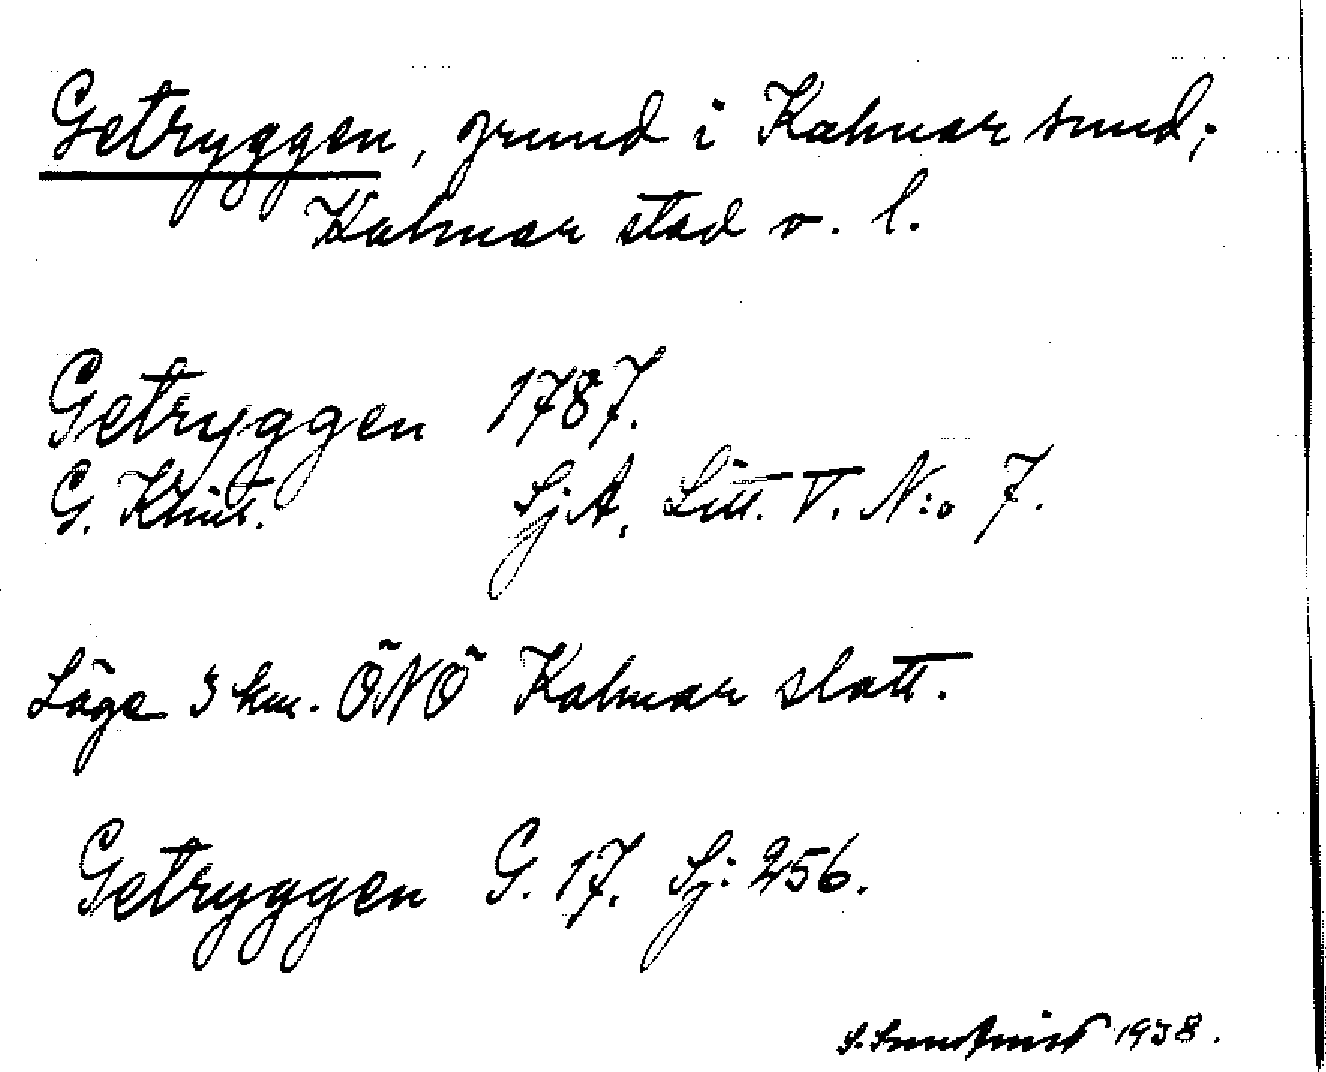 Getryggen, grund i Kalmar sund;
Kalmar stad o. l.
Getryggen 1787.
G. Klint. SjA, Litt. V. N:o 7.
Läge 3 km. ÖNÖ Kalmar slott.
Getryggen G. 17. Sj: 256.
S. Sundqvist 1938.